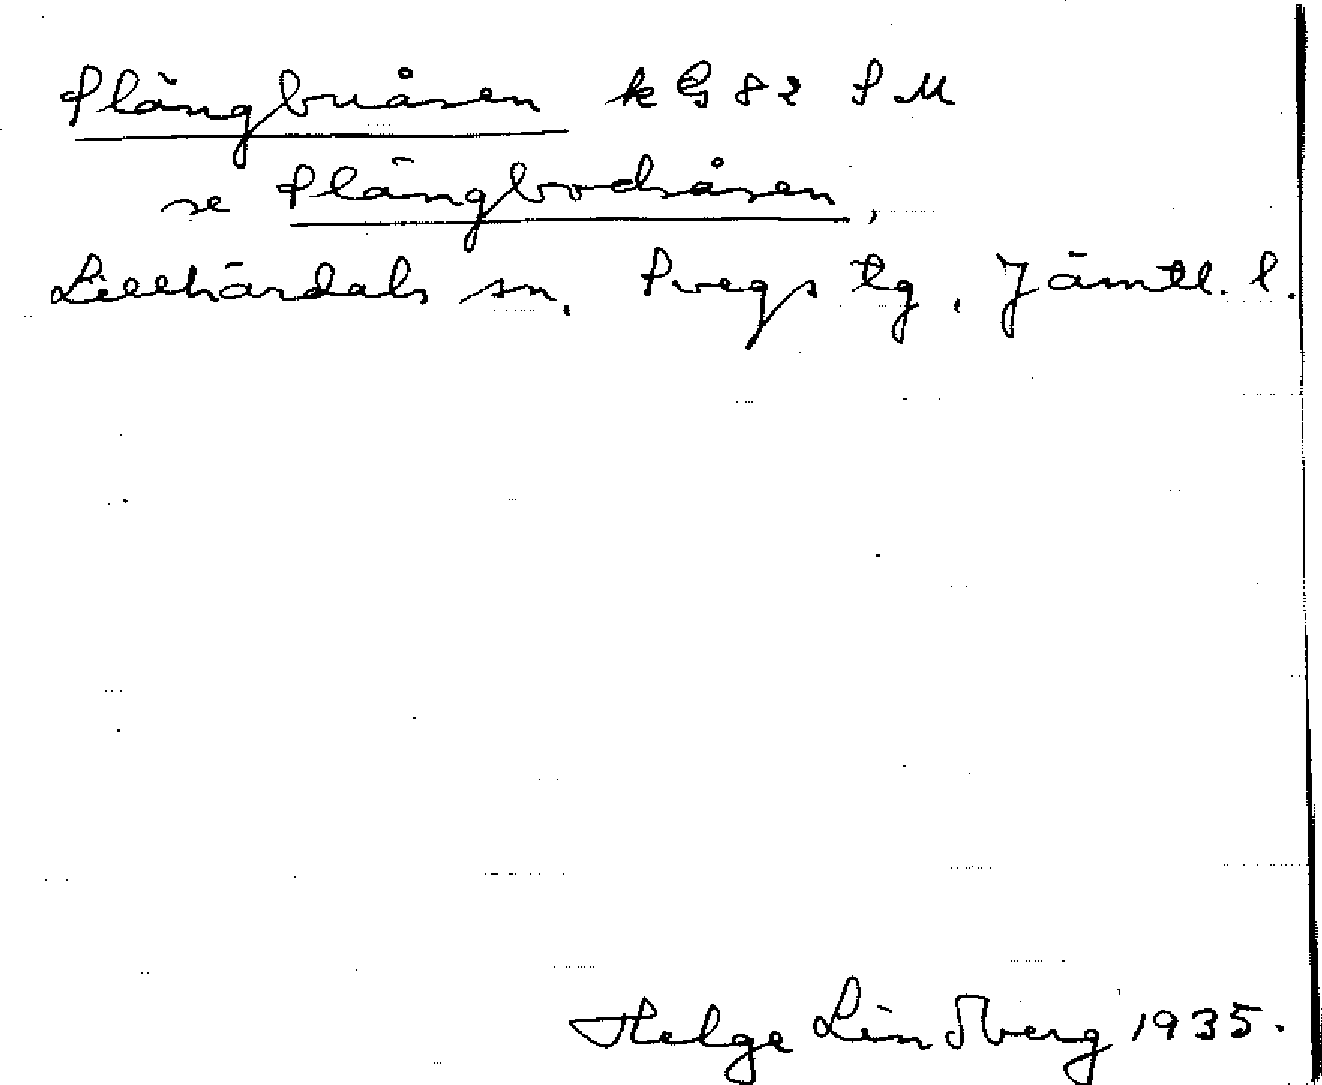 Slängbuåsen k G 82 S M
se Slängbodåsen,
Lillhärdals sn, Svegs tg, Jämtl. l.
Helge Lindberg 1935.